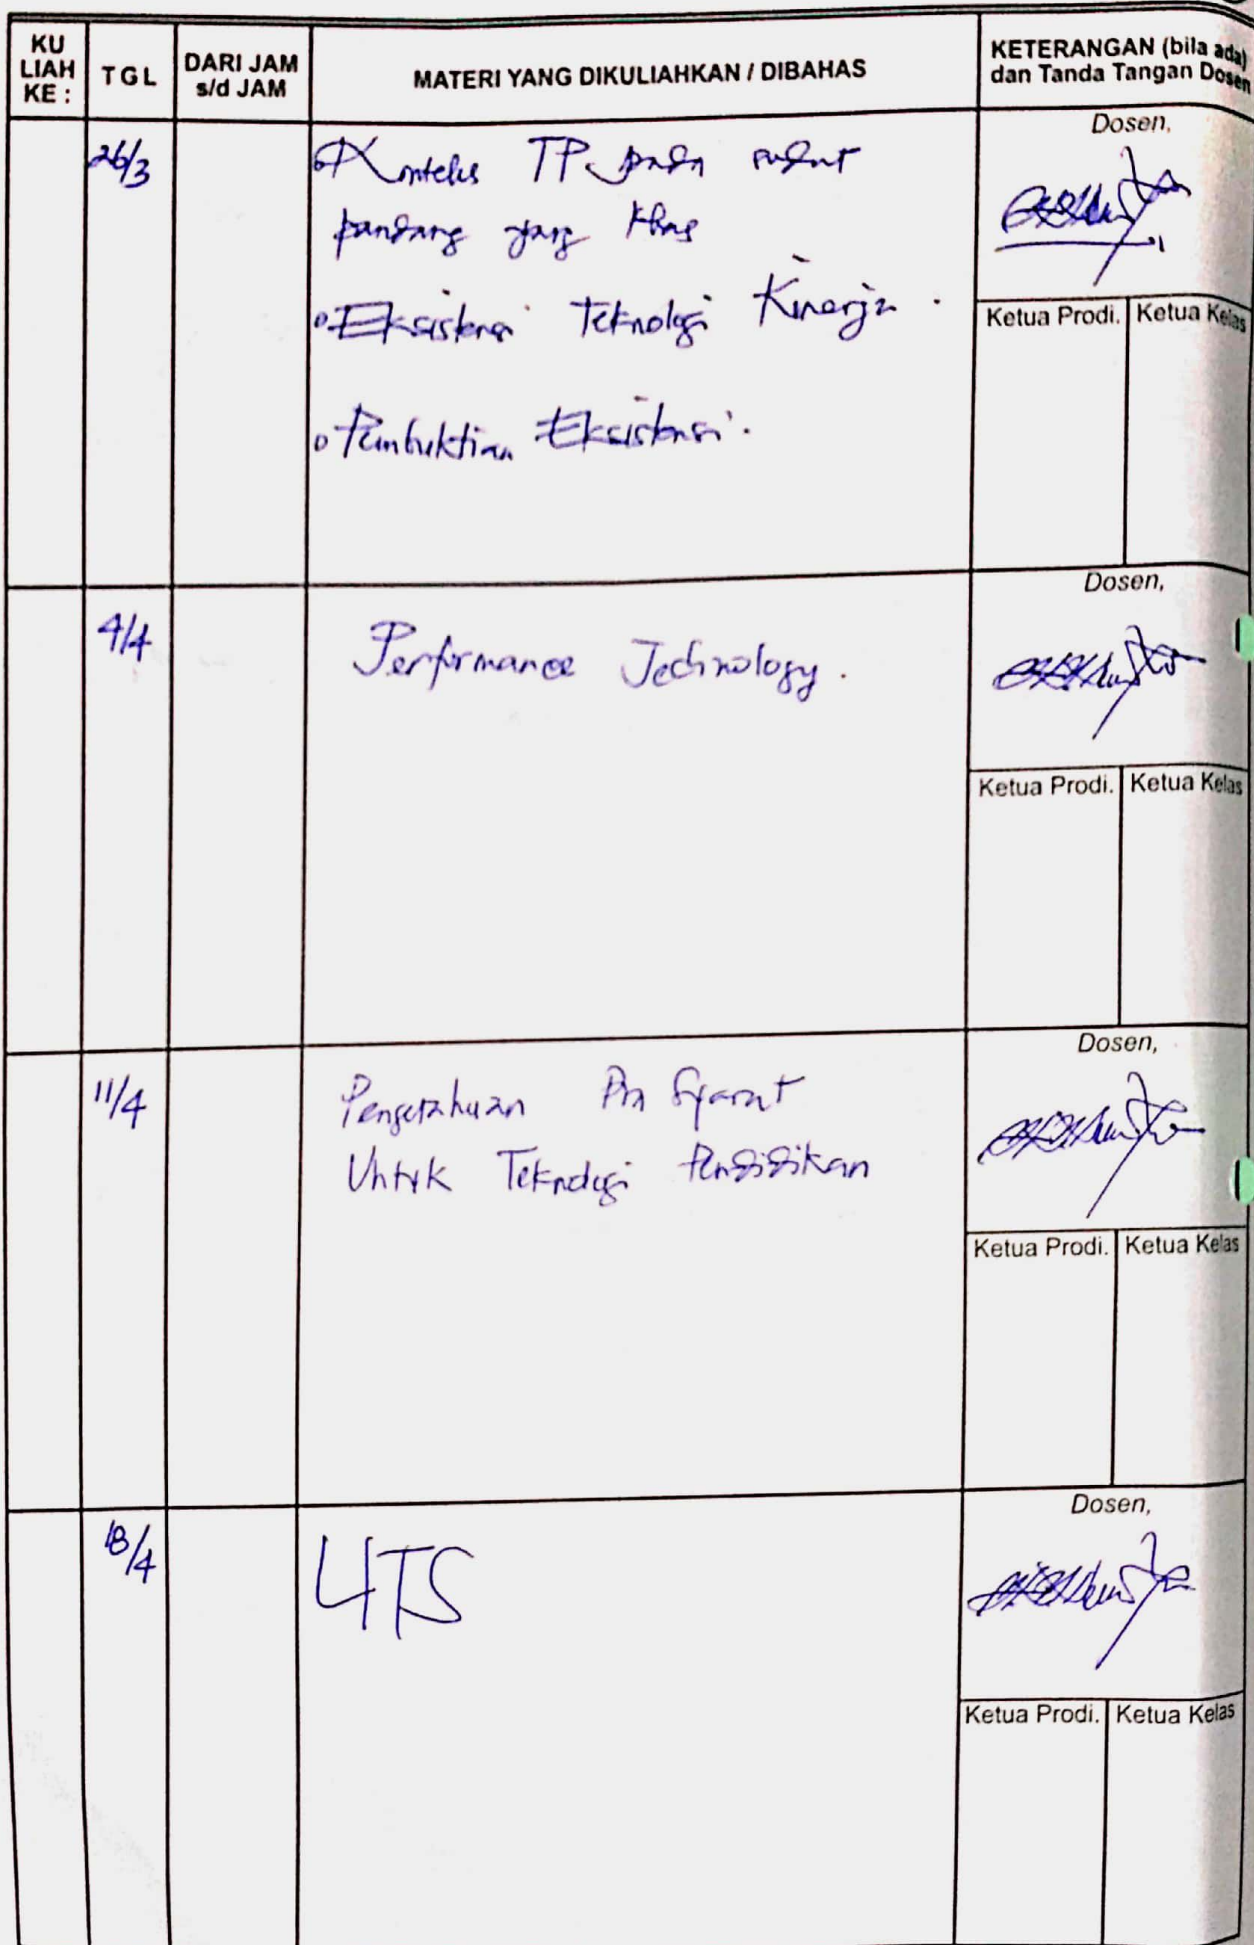 KU LIAH KE :
TGL
DARI JAM s/d JAM
MATERI YANG DIKULIAHKAN / DIBAHAS
KETERANGAN (bila ada) dan Tanda Tangan Dosen
26/3
Konteks TP pada sudut
pandang yang khas
Eksistensi Teknologi Kinerja .
Pembuktian Eksistensi .
Dosen,
Ketua Prodi.
Ketua Kelas
4/4
Performance Technology .
Dosen,
Ketua Prodi.
Ketua Kelas
11/4
Pengetahuan Pra Syarat
Untuk Teknologi Pendidikan
Dosen,
Ketua Prodi.
Ketua Kelas
18/4
UTS
Dosen,
Ketua Prodi.
Ketua Kelas